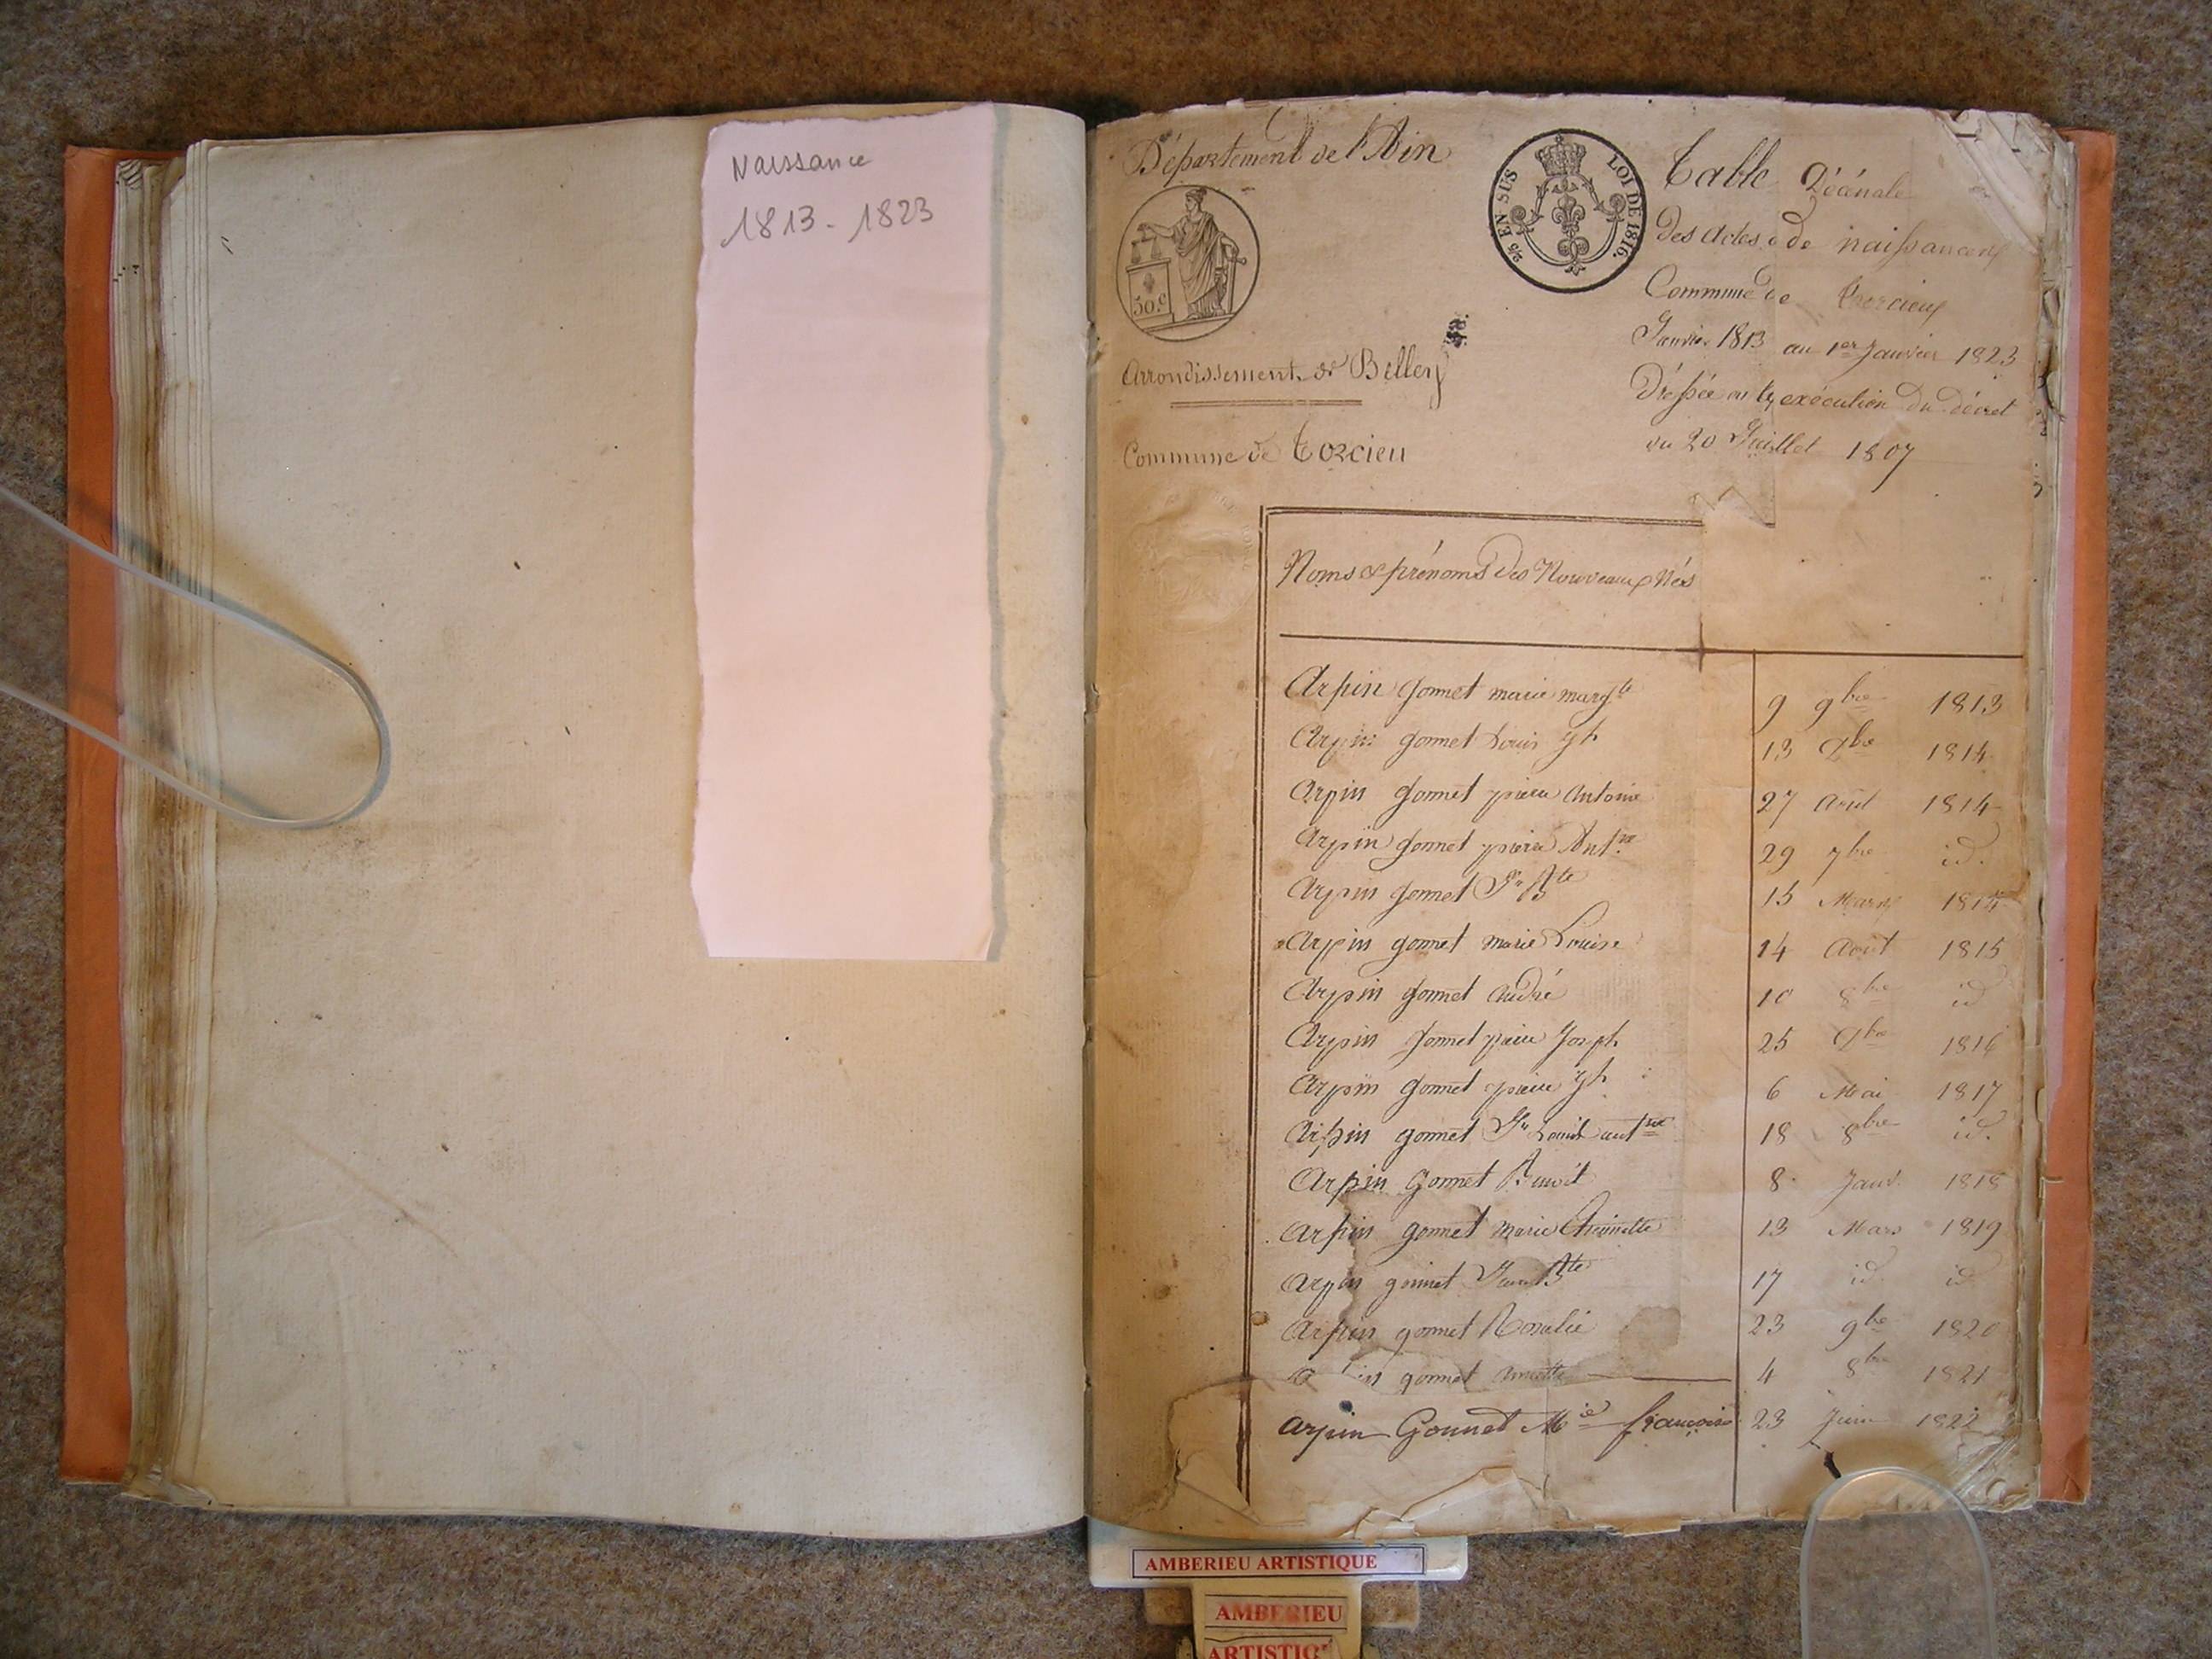 Naissance
1813 - 1823
Département de l'Ain
50.c
Arrondissement de Belley
Commune de Torcieu
EN SUS LOI DE 1816.
Table Décénale
des actes de naissances
Commune de Torcieu
Janvier 1813 au 1er Janvier 1823
Dressée en exécution du décret
du 20 Juillet 1807
Noms & prénoms des Nouveaux Nés
Arpin gonnet marie margte 9 9bre 1813
Arpin gonnet Louis jh 13 1814
Arpin gonnet pierre Antoine 27 Avril 1814
Arpin gonnet pierre Antne 29 7bre id.
Arpin gonnet Jn Bte 15 Mars
Arpin gonnet marie Louise 14 Aout 1815
Arpin gonnet André 10 8bre id
Arpin gonnet pierre Joseph 25 1816
Arpin gonnet pierre jh 6 Mai 1817
Arpin gonnet Jn Louis antne 18 8bre id.
Arpin gonnet Benoit 8 Janv. 1818
Arpin gonnet marie 13 Mars 1819
Arpin gonnet Jean Bte 17 id id
Arpin gonnet Rosalie 23 9bre 1820
gonnet 4 8bre 1821
Arpin Gonnet Mie françoise 23 Juin 1822
AMBERIEU ARTISTIQUE
AMBERIEU
ARTISTIQ